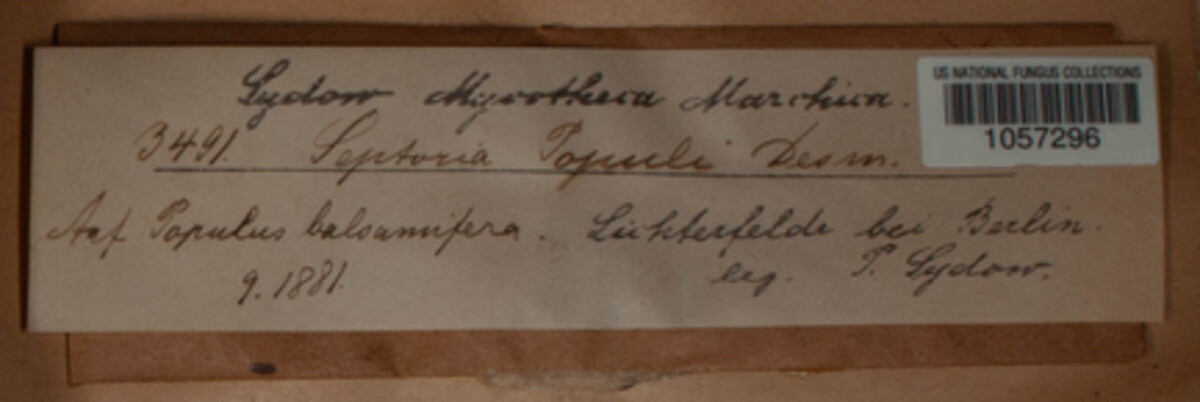 Sydow Mycotheca Marchica.
US NATIONAL FUNGUS COLLECTIONS
1057296
3491. Septoria Populi Desm.
Auf Populus balsamifera. Lichterfelde bei Berlin.
9.1881. leg. P. Sydow.